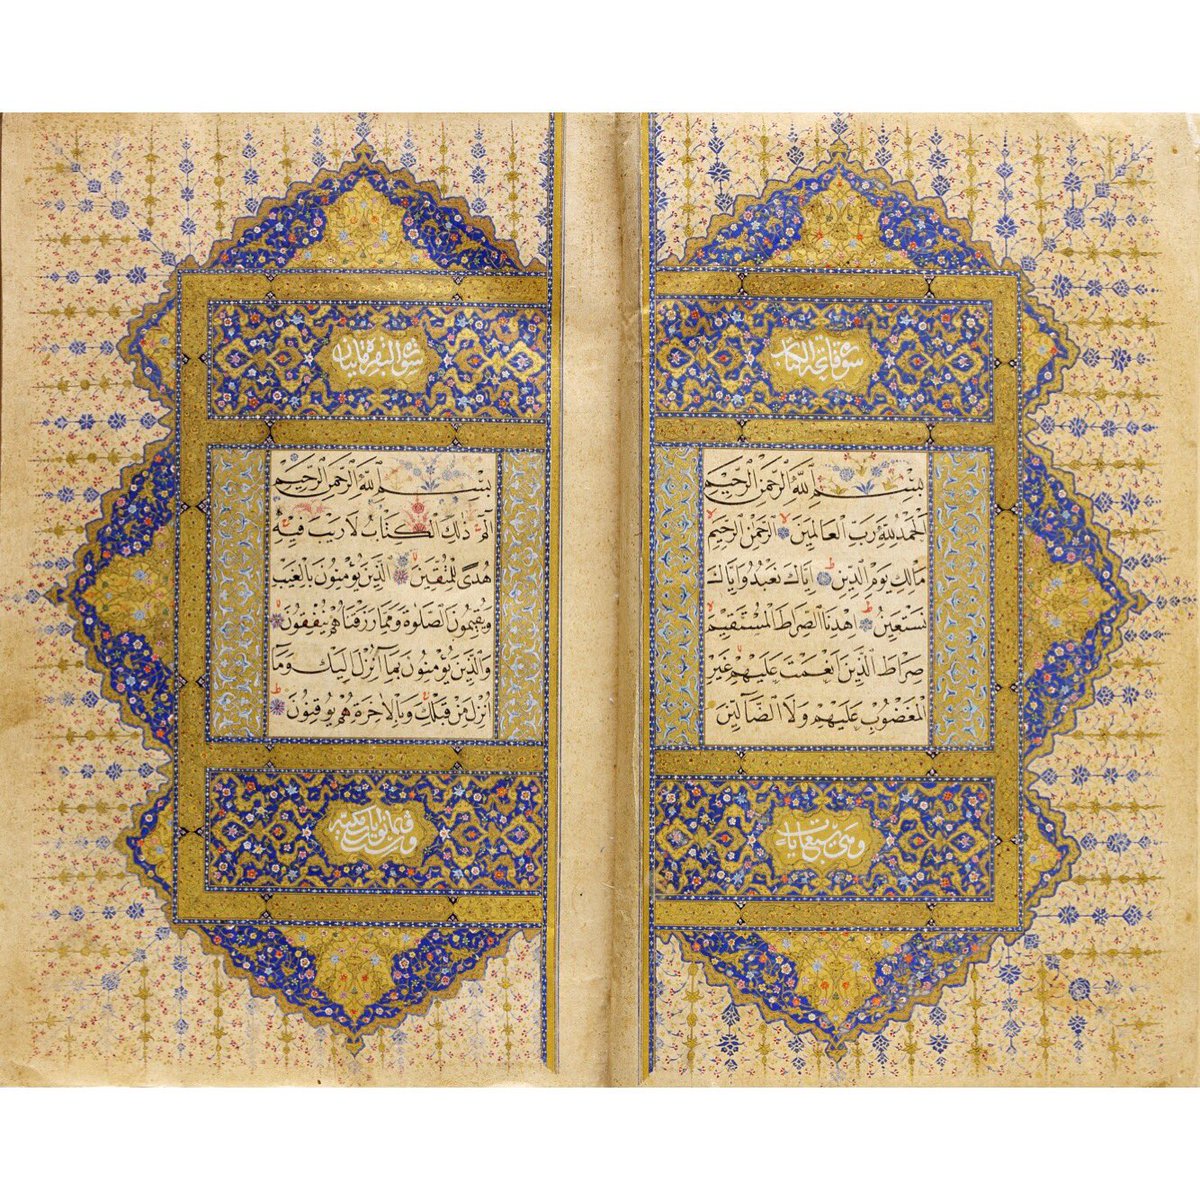 سورة فاتحة الكتاب
بسم الله الرحمن الرحيم
الحمد لله رب العالمين الرحمن الرحيم
مالك يوم الدين اياك نعبد واياك
نستعين اهدنا الصراط المستقيم
صراط الذين انعمت عليهم غير
المغضوب عليهم ولا الضالين
وهي سبع ايات
سورة البقرة مايتان
بسم الله الرحمن الرحيم
الم ذلك الكتاب لا ريب فيه
هدى للمتقين الذين يؤمنون بالغيب
ويقيمون الصلوة ومما رزقناهم ينفقون
والذين يؤمنون بما انزل اليك وما
انزل من قبلك وبالاخرة هم يوقنون
وست